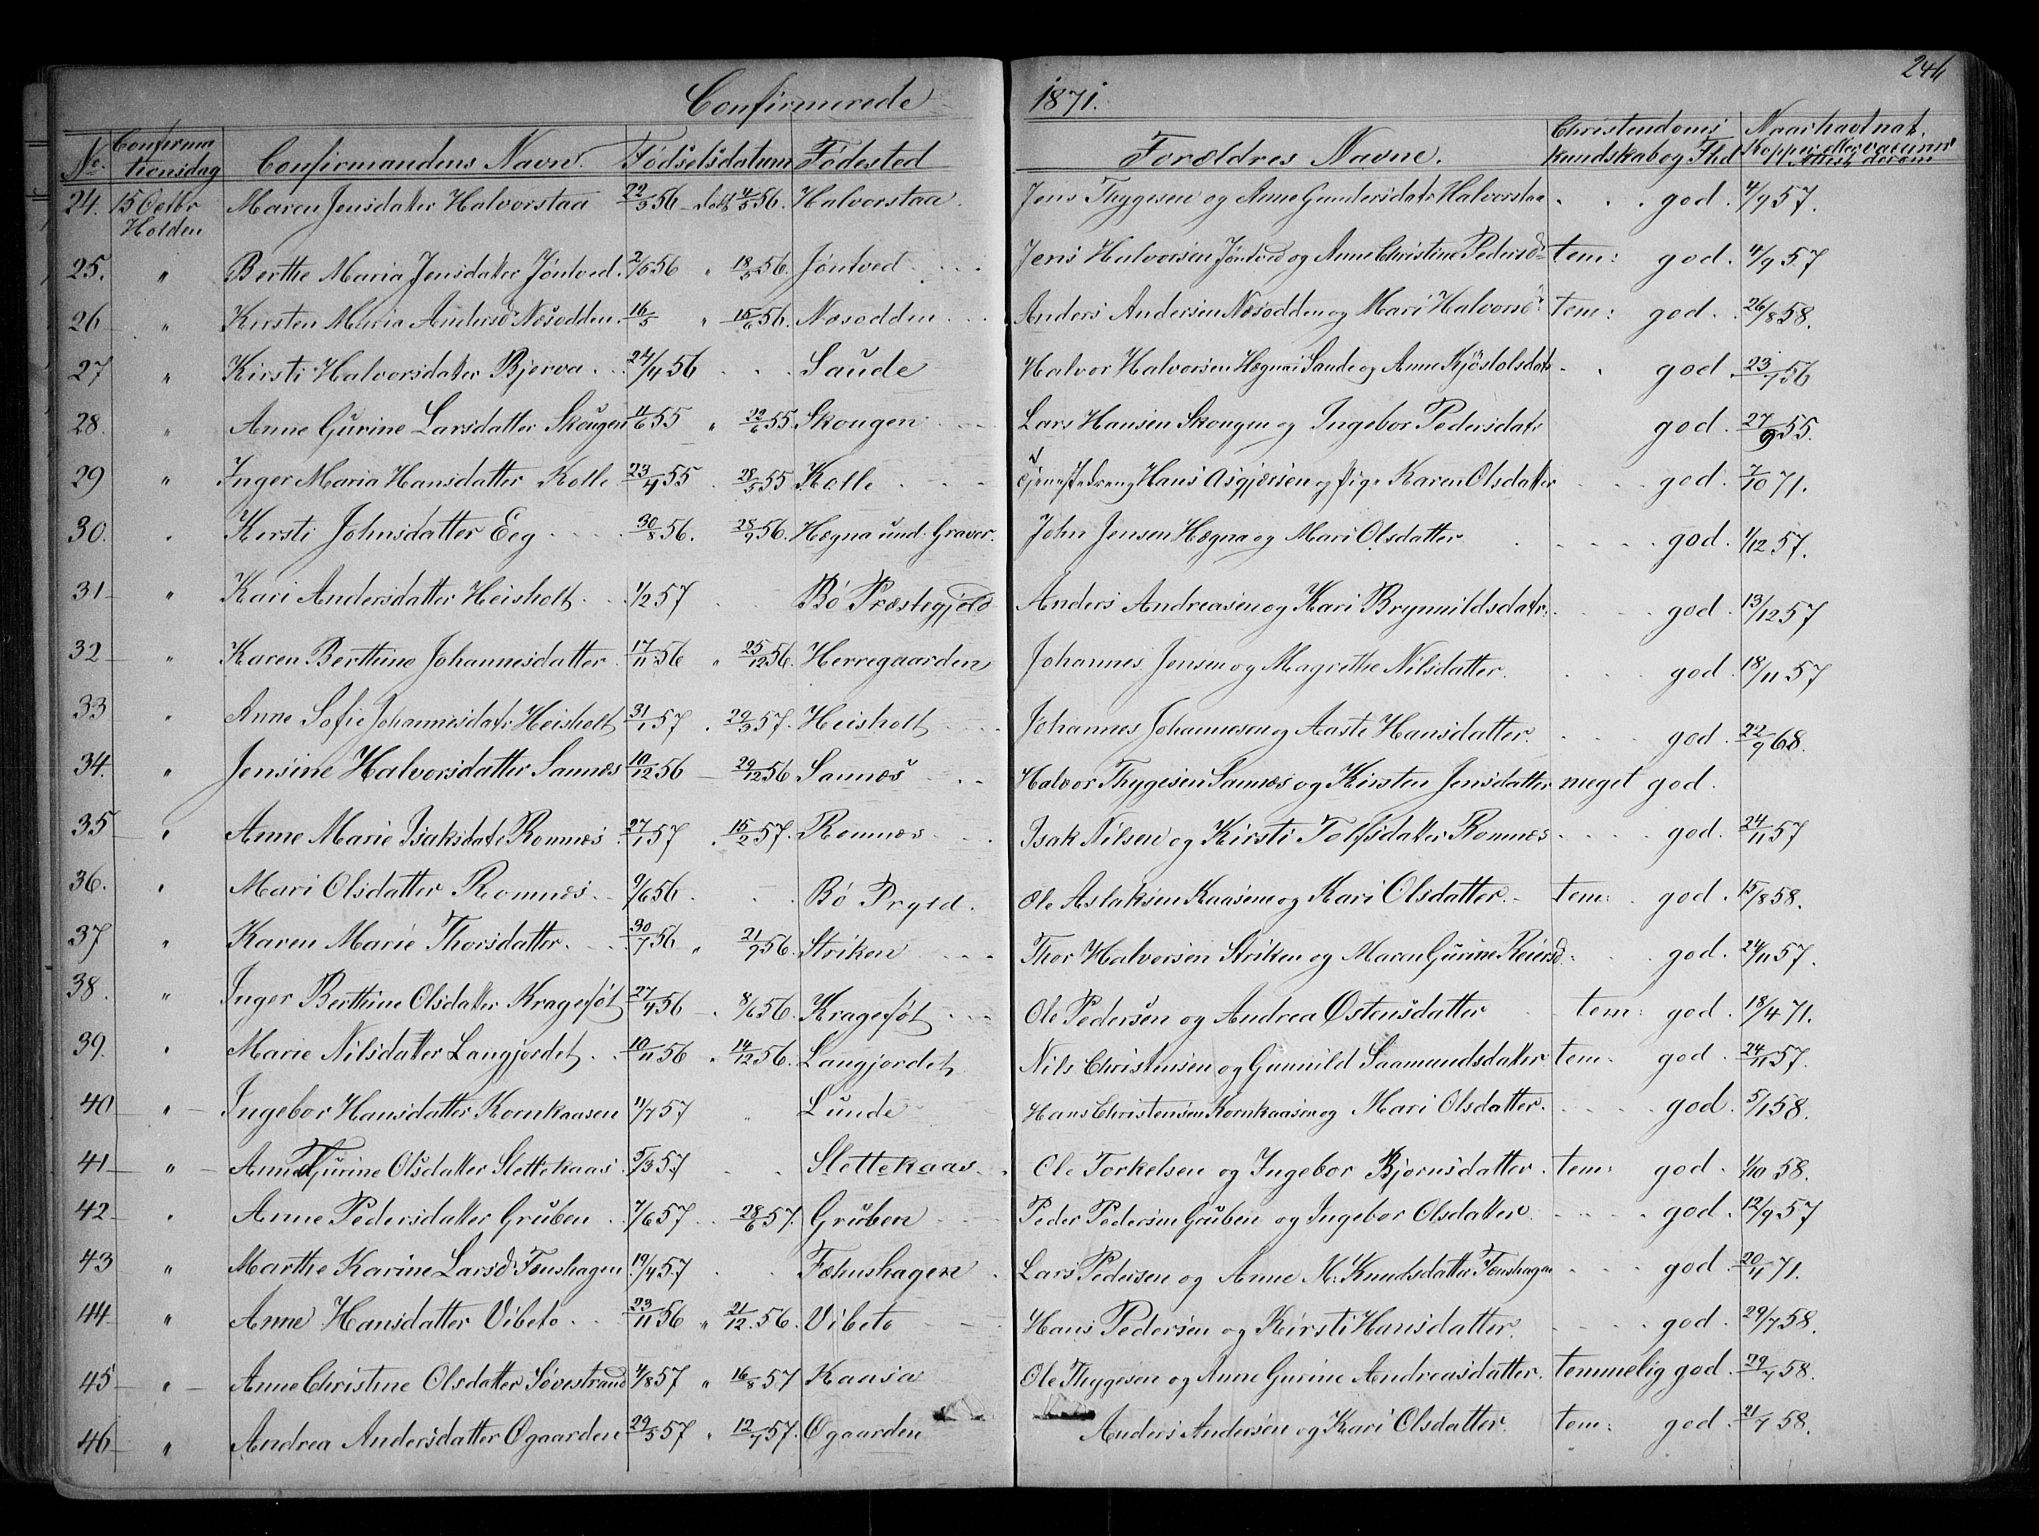 246
Confirmerede 1871.
No. Confirmationsdag Confirmandens Navn. Fødselsdatum Fødested Forældres Navne. Christendoms Kundskab og Flid Naar havt nat. Kopper eller vaccin:
24. 15 Octbr Holden Maren Jensdatter Halvorstaa 22/3 56 – døbt 4/5 56. Halvorstaa. Jens Thygesen og Anne Gundersdatr Halvorstaa . . . god. 4/9 57.
25. " Berthe Maria Jensdatter Jøntved. 2/5 56 " 18/5 56. Jøntved. Jens Halvorsen Jøntved og Anne Christine Pedersd: tem: god. 4/9 57
26 " Kirsten Maria Andersd Næsodden. 16/5 " 15/6 56. Næsodden Anders Andersen Næsodden og Mari Halvorsd: tem: god. 26/8 58.
27 " Kirsti Halvorsdatter Bjerva . . 24/4 56 . . Saude Halvor Halvorsen Hægna i Saude og Anne Kjøstolsdatr . . god. 23/7 56
28. " Anne Gurine Larsdatter Skougen 11/6 55 " 22/6 55 Skougen Lars Hansen Skougen og Ingebor Pedersdatr god. 27/9 55.
29 " Inger Maria Hansdatter Kolle 23/4 55 . 28/5 55 Kolle Tjenestedreng Hans Asgjærsen og Pige Karen Olsdatter . . god. 7/10 71.
30. " Kirsti Johnsdatter Eeg 30/8 56. 28/9 56. Hægna und. Graver. John Jensen Hægna og Mari Olsdatter . . god. 1/12 57.
31 " Kari Andersdatter Heisholt. 1/2 57 Bø Præstegjeld Anders Andreasen og Kari Brynnildsdatr: god. 13/12 57
32 " Karen Berthine Johannesdatter. 17/11 56 " 25/12 56. Herregaarden Johannes Jensen og Magrethe Nilsdatter. god. 18/11 57
33 " Anne Sofie Johannesdatr Heisholt 31/1 57 . 29/3 57. Heisholt Johannes Johannesen og Aaste Hansdatter. god. 22/9 68.
34. " Jensine Halvorsdatter Sannes 10/12 56 – 29/12 56 Sannes Halvor Thygesen Sannæs og Kirsten Jensdatter meget god.
35 " Anne Marie Isaksdatr Romnæs 27/1 57 . 15/2 57. Romnæs Isak Nilsen og Kirsti Tolfsdatter Romnæs god. 24/11 57
36. " Mari Olsdatter Romnæs. 9/6 56. Bø Prgjld. Ole Aslaksen Kaasene og Kari Olsdatter. tem: god. 15/8 58.
37 " Karen Marie Thorsdatter. 30/7 56 " 21/9 56. Striken Thor Halvorsen Striken og Maren Gurine Reiersd: god. 24/11 57.
38. " Inger Berthine Olsdatter Krageføt 27/4 56 . 8/6 56. Krageføt Ole Pedersen og Andrea Østensdatter tem: god. 18/4 71.
39. " Marie Nilsdatter Langjordet. 10/11 56 " 14/12 56. Langjordet Nils Christensen og Gunnild Saamundsdatter tem: god. 24/11 57.
40 " Ingebor Hansdatter Kornkaasen 11/7 57 " Lunde Hans Christensen Kornkaasen og Mari Olsdatter. god. 5/1 58.
41 " Anne Gurine Olsdatter Slettekaas 5/3 57. Slettekaas Ole Torkelsen og Ingebor Bjornsdatter. tem: god. 1/10 58.
42 " Anne Pedersdatter Gruben 7/6 57. 28/6 57. Gruben Peder Pedersen Gruben og Ingebor Olsdatter. god. 12/9 57
43 " Marthe Karine Larsd: Fenshagen 19/4 57 Fæhnshagen Lars Pedersen og Anne M. Knudsdatter Fenshagen god. 20/4 71.
44 " Anne Hansdatter Vibeto 23/11 56 " 21/12 56. Vibeto Hans Pedersen og Kirsti Hansdatter. god. 29/7 58.
45 " Anne Christine Olsdatter Søvestrand 4/8 57 " 16/8 57 Kaasa Ole Thygesen og Anne Gurine Andreasdatter. temmelig god. 29/7 58.
46 " Andrea Andersdatter Øgaarden 29/5 57 " 12/7 57. Øgaarden Anders Andersen og Kari Olsdatter. tem: god. 21/7 58.